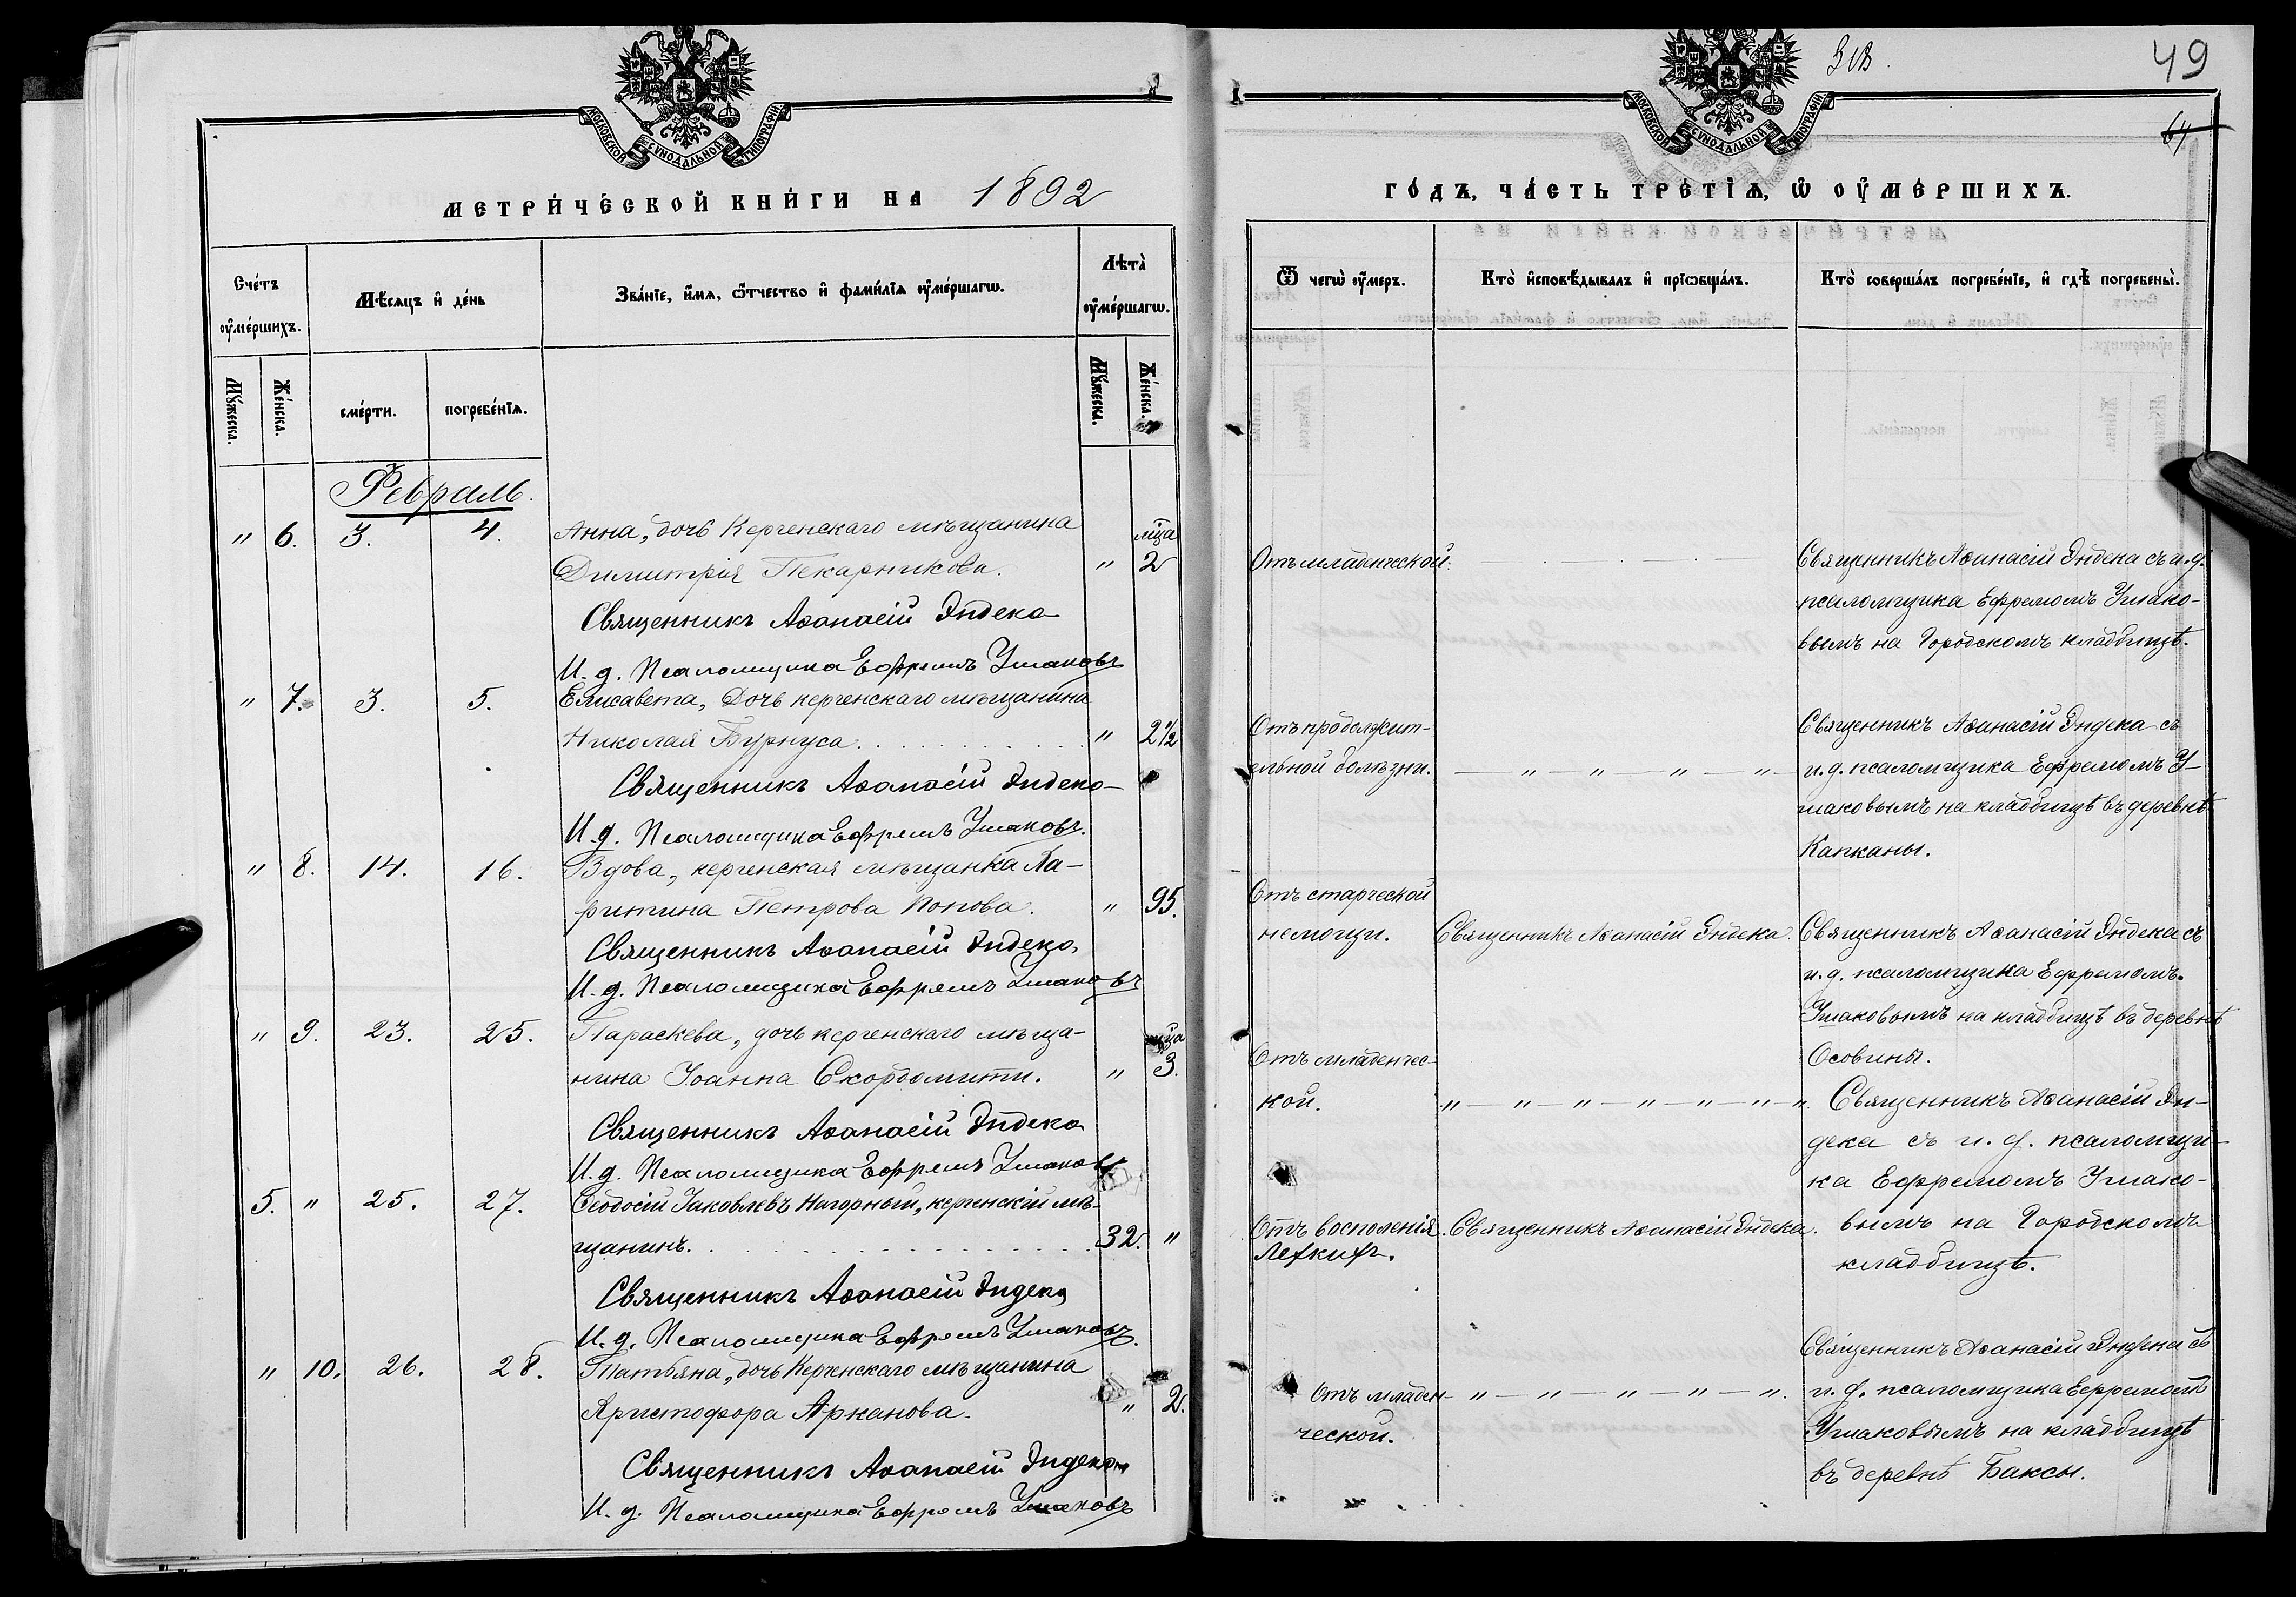 МОСКОВСКОЙ СѴНОДАЛЬНОЙ ТИПОГРАФІИ
МЕТРИ́ЧЕСКОЙ КНИ́ГИ НА 1892
Сче́тъ ᲂу҆ме́ршихъ.
Мѣ́сяцъ и҆ де́нь
Зва́нїе, и҆́мя, ѻ҆́тчество и҆ фами́лїя ᲂу҆ме́ршагѡ.
Лѣта̀ ᲂу҆ме́ршагѡ.
Мꙋ́жеска.
Же́нска.
сме́рти.
погребе́нїѧ.
Мꙋ́жеска.
Же́нска.
Февраль.
" 6. 3. 4. Анна, дочь Керченскаго мѣщанина мца
Димитрія Пекарникова. " 2
Священникъ Аѳанасій Эндека
И. д. Псаломщика Ефремъ Ушаковъ
" 7. 3. 5. Елисавета, дочь керченскаго мѣщанина
Николая Бурнуса. " 2½
Священникъ Аѳанасій Эндека
И. д. Псаломщика Ефремъ Ушаковъ.
" 8. 14. 16. Вдова, керченская мѣщанка Ха-
ритина Петрова Попова. " 95.
Священникъ Аѳанасій Эндека
И. д. Псаломщика Ефремъ Ушаковъ
" 9. 23. 25. Параскева, дочь керченскаго мѣща- мца
нина Іоанна Скордомити. " 3.
Священникъ Аѳанасій Эндека
И. д. Псаломщика Ефремъ Ушаковъ
5. " 25. 27. Ѳеодосій Іаковлевъ Нагорный, керченскій мѣ-
щанинъ. 32. "
Священникъ Аѳанасій Эндека
И. д. Псаломщика Ефремъ Ушаковъ.
" 10. 26. 28. Татьяна, дочь Керченскаго мѣщанина
Христофора Арканова. " 2.
Священникъ Аѳанасій Эндека
И. д. Псаломщика Ефремъ Ушаковъ
49
64
МОСКОВСКОЙ СѴНОДАЛЬНОЙ ТИПОГРАФІИ
ГО́ДЪ, ЧА́СТЬ ТРЕ́ТЇѦ, Ѡ҆ ОУ҆МЕ́РШИХЪ.
Ѿ чегѡ̀ ᲂу҆́меръ.
Кто̀ и҆сповѣ́дывалъ и҆ прїѡбща́лъ.
Кто̀ соверша́лъ погребе́нїе, и҆ гдѣ̀ погребены̀.
Отъ младенческой. Священникъ Аѳанасій Эндека съ и. д.
псаломщика Ефремомъ Ушако-
вымъ на Городскомъ кладбищѣ.
Отъ продолжит- Священникъ Аѳанасій Эндека съ
ельной болѣзни. — " — " — " — " — и. д. псаломщика Ефремомъ У-
шаковымъ на кладбищѣ въ деревнѣ
Капканы.
Отъ старческой
немощи. Священникъ Аѳанасій Эндека. Священникъ Аѳанасій Эндека съ
и. д. псаломщика Ефремомъ
Ушаковымъ на кладбищѣ въ деревнѣ
Осовины.
Отъ младенчес-
кой. " — " — " — " — " — " — " Священникъ Аѳанасій Эн-
дека съ и. д. псаломщи-
ка Ефремомъ Ушако-
вымъ на Городскомъ
кладбищѣ.
Отъ воспаленія Священникъ Аѳанасій Эндека.
Легкихъ.
Священникъ Аѳанасій Эндека съ
Отъ младен- " — " — " — " — " и. д. псаломщика Ефремомъ
ческой. Ушаковымъ на кладбищѣ
въ деревнѣ Баксы.